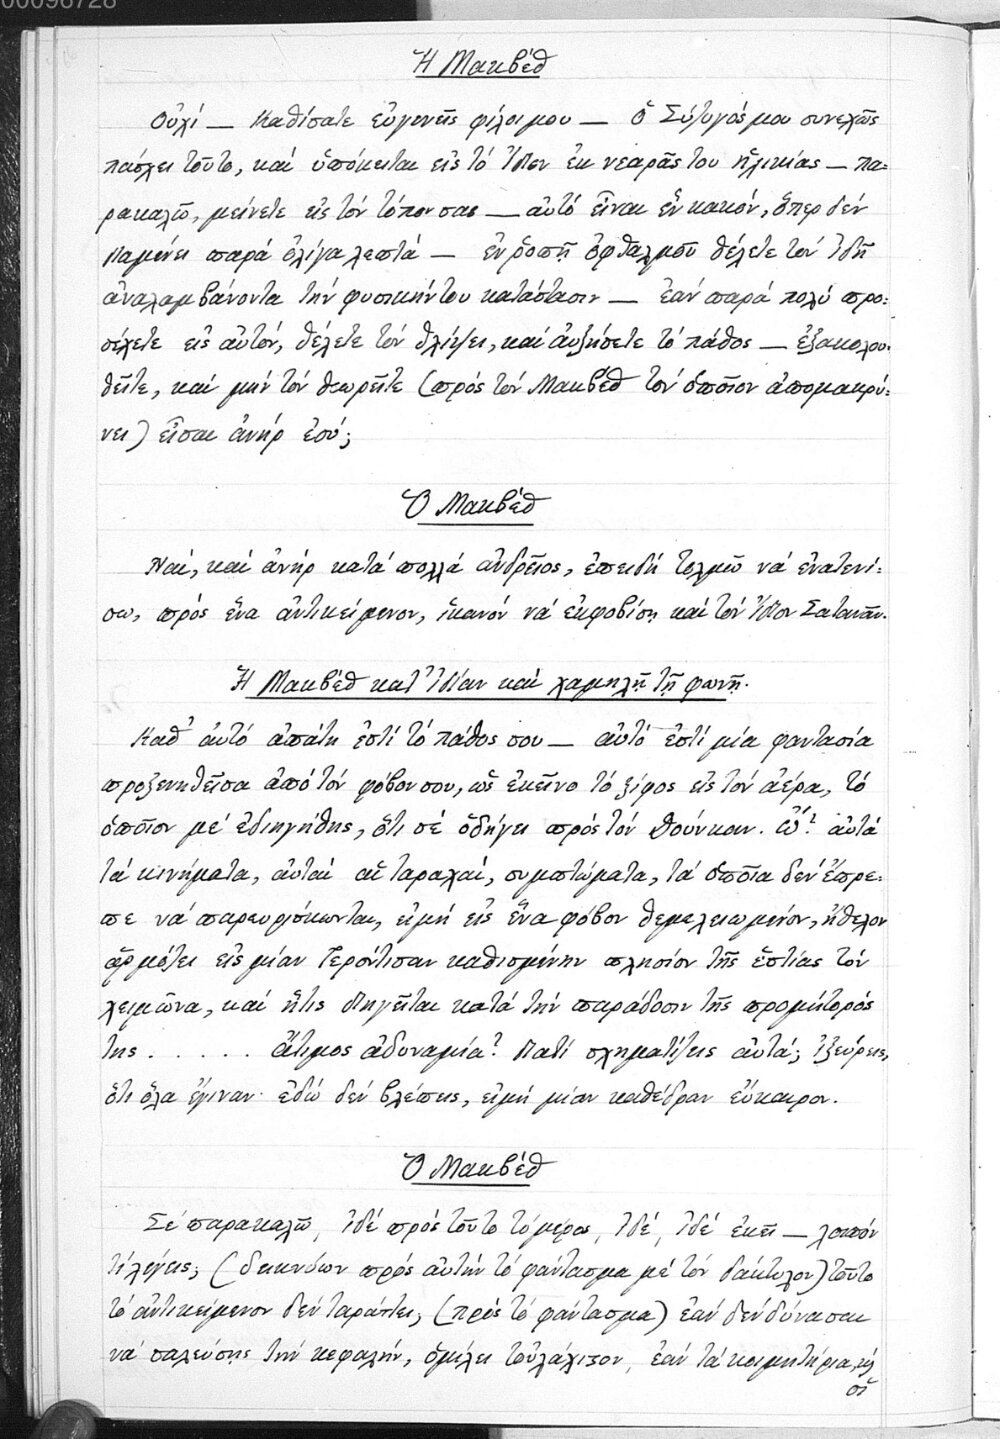 00096728
Ἡ Μακβέθ
Οὐχί — Καθίσατε εὐγενεῖς φίλοι μου — Ὁ Σύζυγός μου συνεχῶς
πάσχει τοῦτο, καί ὑπόκειται εἰς τό ἴδιον ἐκ νεαρᾶς του ἡλικίας — πα-
ρακαλῶ, μείνετε εἰς τόν τόπον σας — αὐτό εἶναι ἓν κακόν, ὅπερ δέν
διαμένει παρά ὀλίγα λεπτά — ἐν ῥοπῇ ὀφθαλμοῦ θέλετε τόν ἰδῆ
ἀναλαμβάνοντα τήν φυσικήν του κατάστασιν — ἐάν παρά πολύ προ-
σέχετε εἰς αὐτόν, θέλετε τόν θλίψει, καί αὐξήσετε τό πάθος — ἐξακολου-
θεῖτε, καί μήν τόν θεωρεῖτε (πρός τόν Μακβέθ τόν ὁποῖον ἀπομακρύ-
νει) εἶσαι ἀνήρ ἐσύ;
Ὁ Μακβέθ
Ναί, καί ἀνήρ κατά πολλά ἀνδρεῖος, ἐπειδή τολμῶ νά ἐνατενί-
σω, πρός ἕνα ἀντικείμενον, ἱκανόν νά ἐκφοβίσῃ καί τόν ἴδιον Σατανᾶν.
Ἡ Μακβέθ κατ' ἰδίαν καί χαμηλῇ τῇ φωνῇ.
Καθ' αὐτό ἀπάτη ἐστί τό πάθος σου — αὐτό ἐστί μία φαντασία
προξενηθεῖσα ἀπό τόν φόβον σου, ὡς ἐκεῖνο τό ξίφος εἰς τόν ἀέρα, τό
ὁποῖον μέ ἐδιηγήθης, ὅτι σέ ὁδήγει πρός τόν Θούνκαν. Ὤ! αὐτά
τά κινήματα, αὐταί αἱ ταραχαί, συμπτώματα, τά ὁποῖα δέν ἔπρε-
πε νά παρευρίσκωνται, εἰμή εἰς ἕνα φόβον θεμελειωμένον, ἤθελον
ἁρμόζει εἰς μίαν Γερόντισαν καθισμένην πλησίον τῆς ἑστίας τόν
χειμῶνα, καί ἥτις διηγεῖται κατά τήν παράδοσιν τῆς προμήτορός
της . . . . . ἄτιμος ἀδυναμία! Διατί σχηματίζεις αὐτά; ἰξεύρεις,
ὅτι ὅλα ἔγιναν· ἐδώ δέν βλέπεις, εἰμή μίαν καθέδραν εὔκαιρον.
Ὁ Μακβέθ
Σέ παρακαλῶ, ἰδέ πρός τοῦτο τό μέρος, ἰδέ, ἰδέ ἐκεῖ — λοιπόν
τί λέγεις; (δεικνύων πρός αὐτήν τό φάντασμα μέ τόν δάκτυλον) τοῦτο
τό ἀντικείμενον δέν ταράττει; (πρός τό φάντασμα) ἐάν δέν δύνασαι
νά σαλεύσῃς τήν κεφαλήν, ὁμίλει τοὐλάχιστον, ἐάν τά κοιμητήρια, καί
οἱ